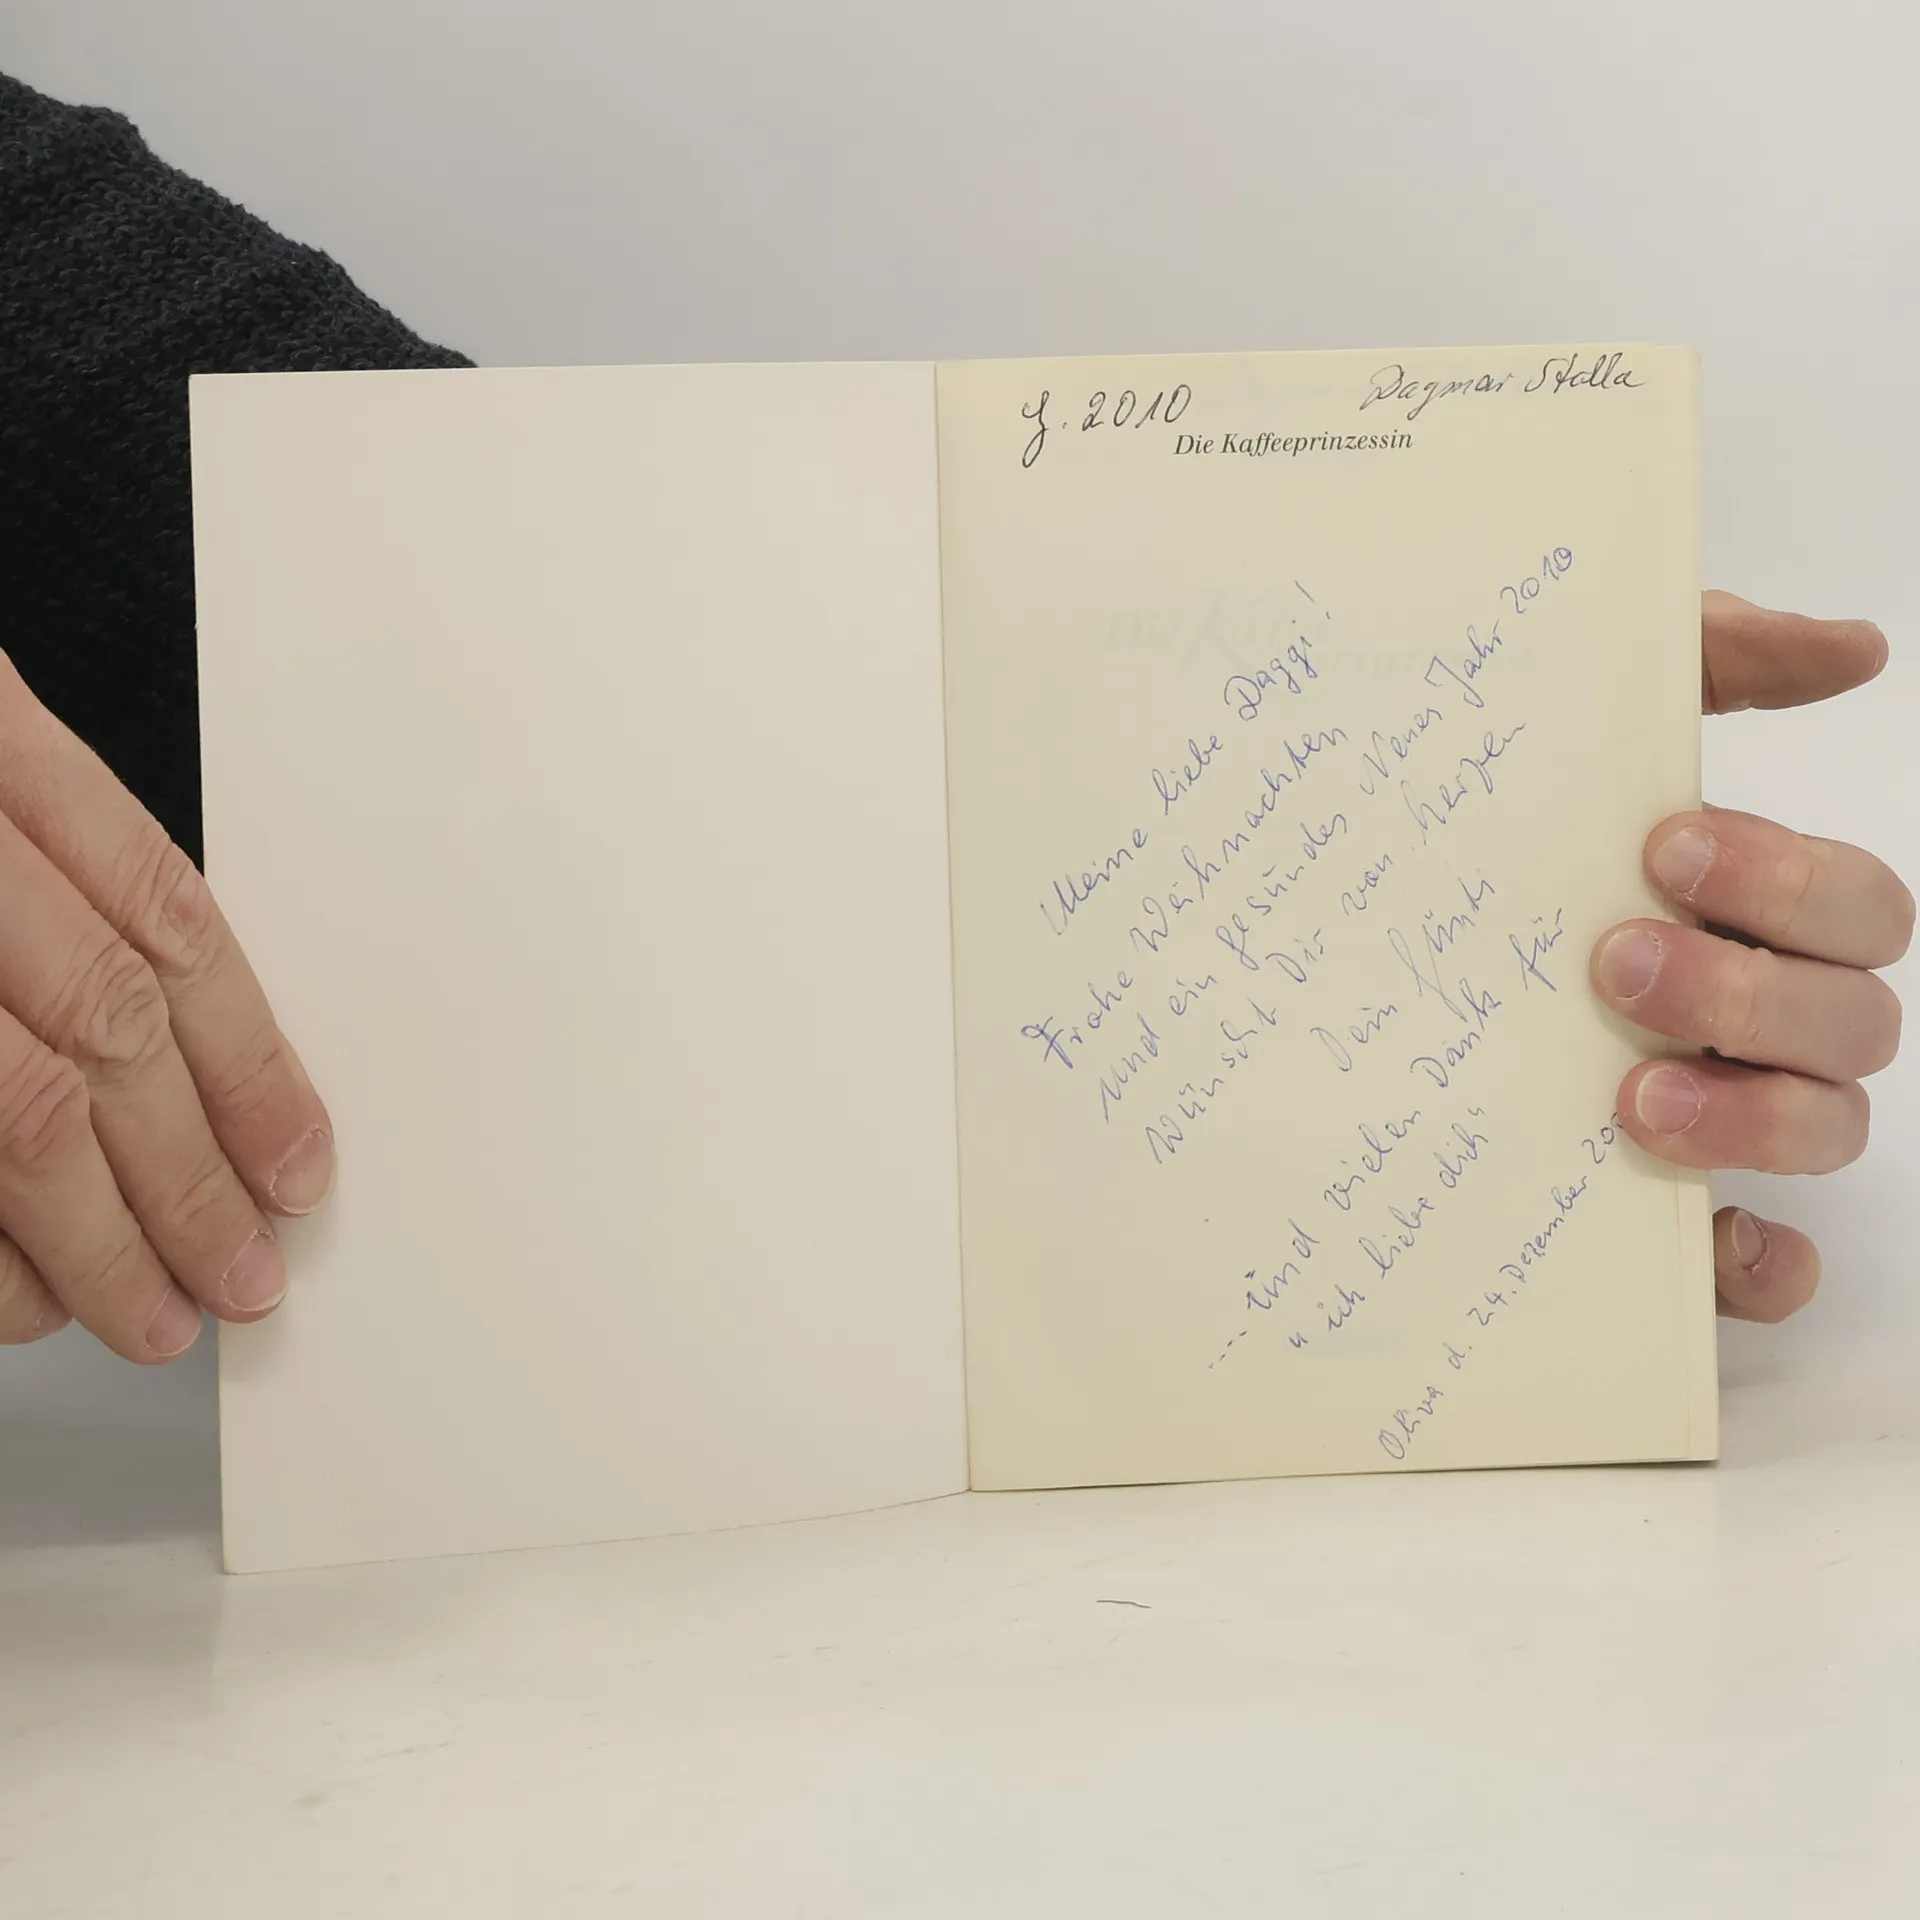 J. 2010
Dagmar Stolla
Die Kaffeeprinzessin
Meine liebe Daggi!
Frohe Weihnachten
und ein gesundes Neues Jahr 2010
wünscht Dir von herzen
Dein
... und vielen Dank für
"ich liebe dich"
d. 24. Dezember